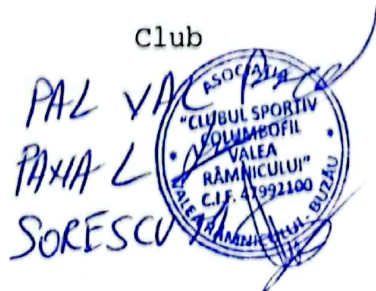 Club
PAL VAC
PAHA L
SORESCU
ASOCIAȚIA
"CLUBUL SPORTIV
COLUMBOFIL
VALEA
RÂMNICULUI"
C.I.F. 41992100
VALEA RÂMNICULUI - BUZĂU